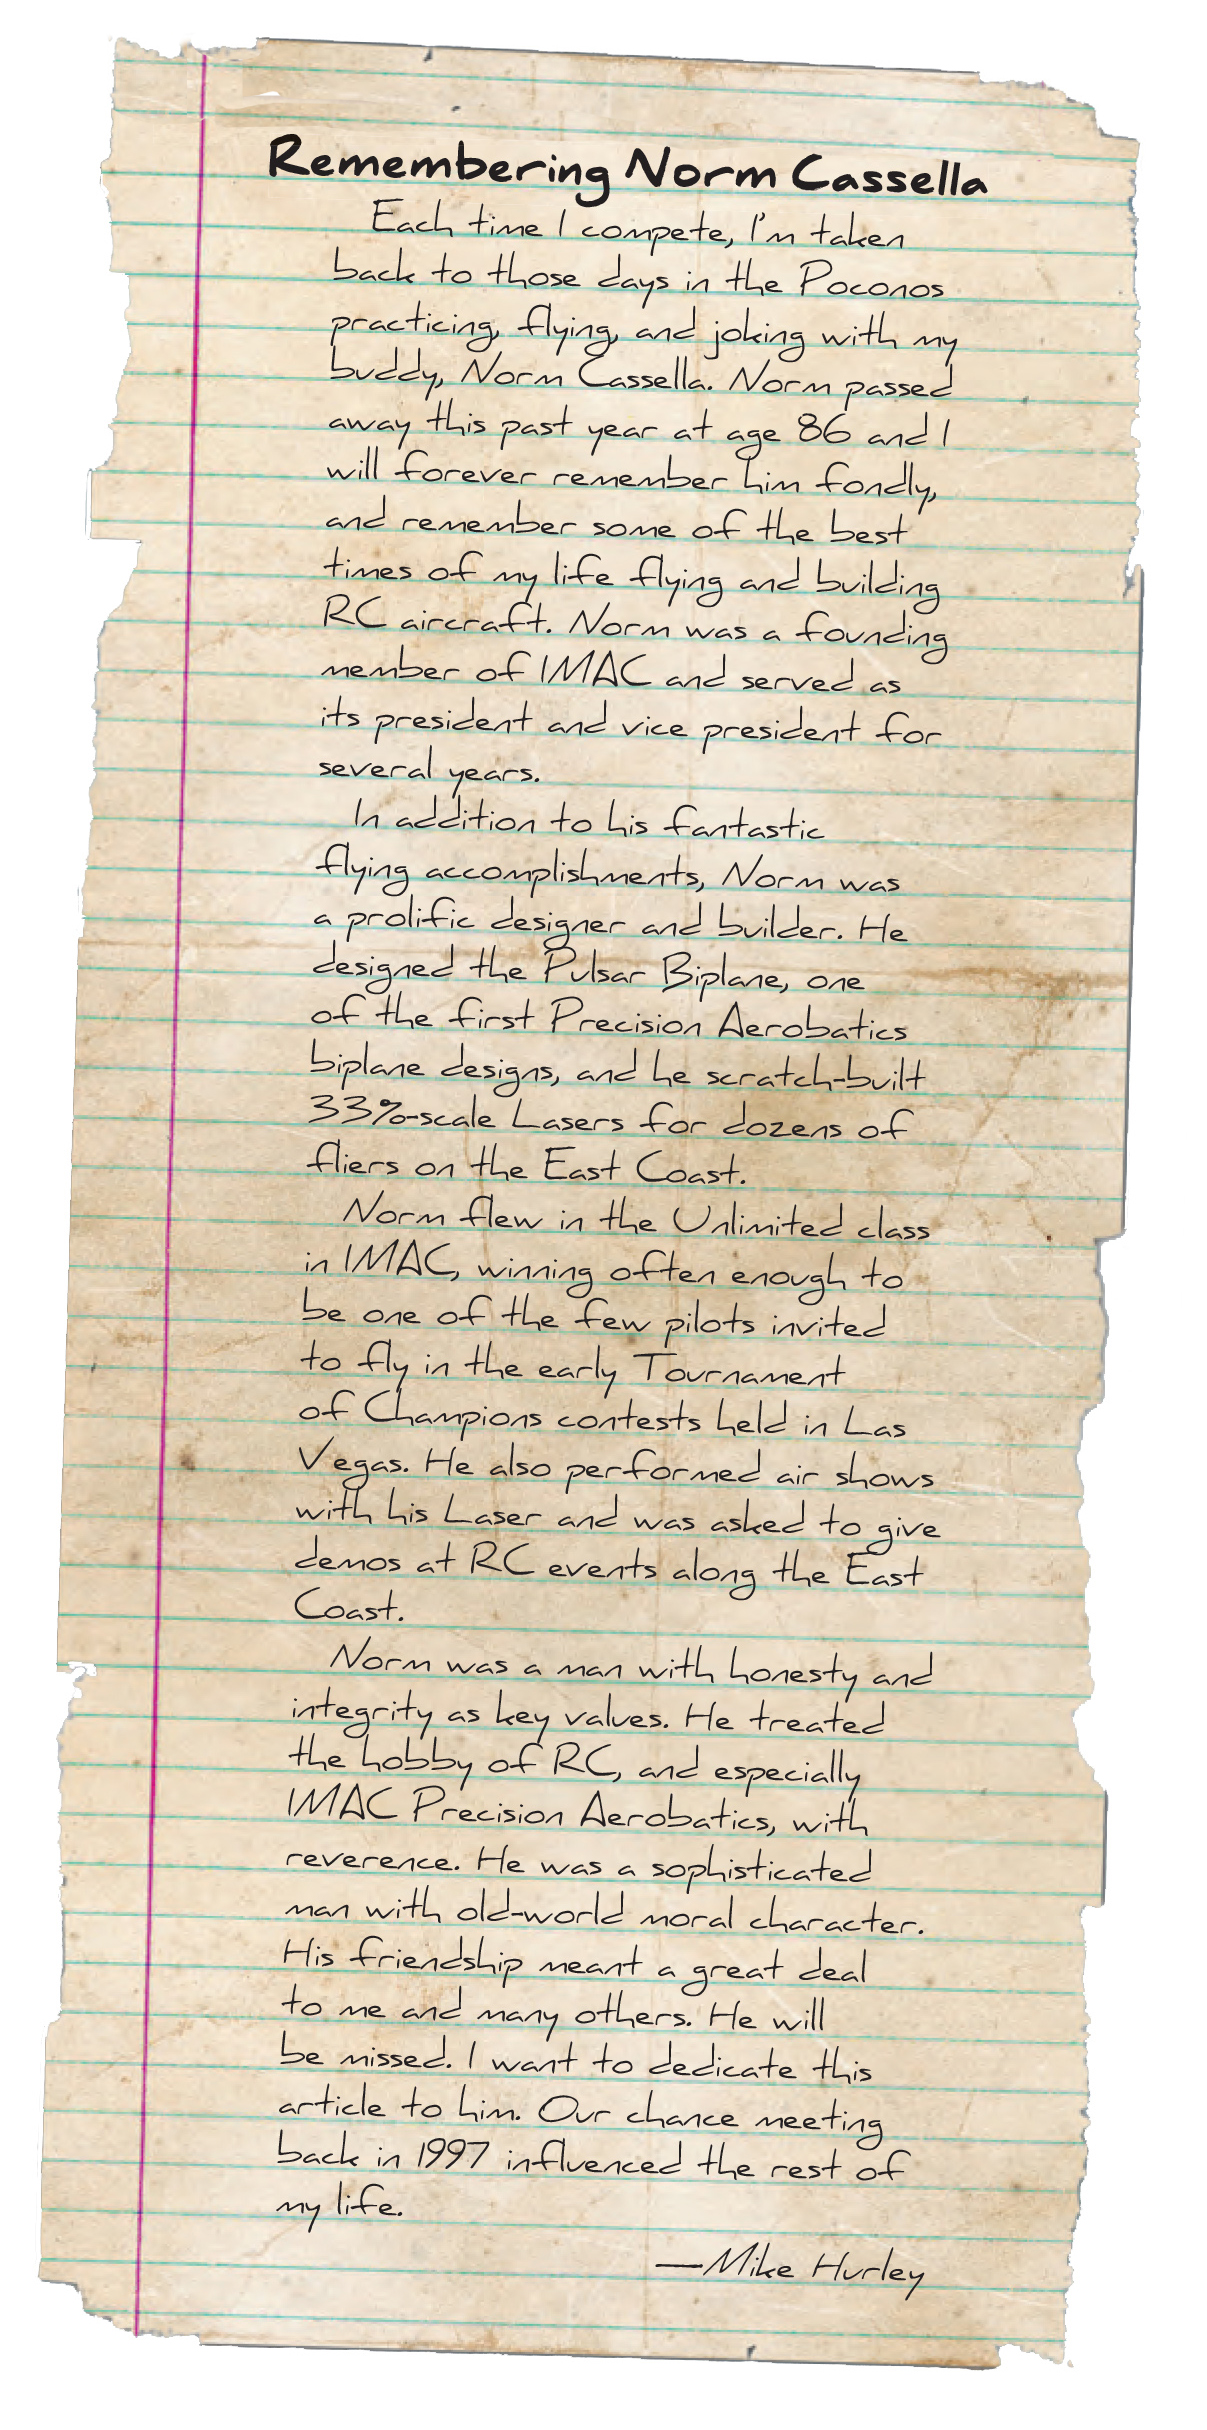 Remembering Norm Cassella
Each time I compete, I'm taken
back to those days in the Poconos
practicing, flying, and joking with my
buddy, Norm Cassella. Norm passed
away this past year at age 86 and I
will forever remember him fondly,
and remember some of the best
times of my life flying and building
RC aircraft. Norm was a founding
member of IMAC and served as
its president and vice president for
several years.
In addition to his fantastic
flying accomplishments, Norm was
a prolific designer and builder. He
designed the Pulsar Biplane, one
of the first Precision Aerobatics
biplane designs, and he scratch-built
33%-scale Lasers for dozens of
fliers on the East Coast.
Norm flew in the Unlimited class
in IMAC, winning often enough to
be one of the few pilots invited
to fly in the early Tournament
of Champions contests held in Las
Vegas. He also performed air shows
with his Laser and was asked to give
demos at RC events along the East
Coast.
Norm was a man with honesty and
integrity as key values. He treated
the hobby of RC, and especially
IMAC Precision Aerobatics, with
reverence. He was a sophisticated
man with old-world moral character.
His friendship meant a great deal
to me and many others. He will
be missed. I want to dedicate this
article to him. Our chance meeting
back in 1997 influenced the rest of
my life.
—Mike Hurley